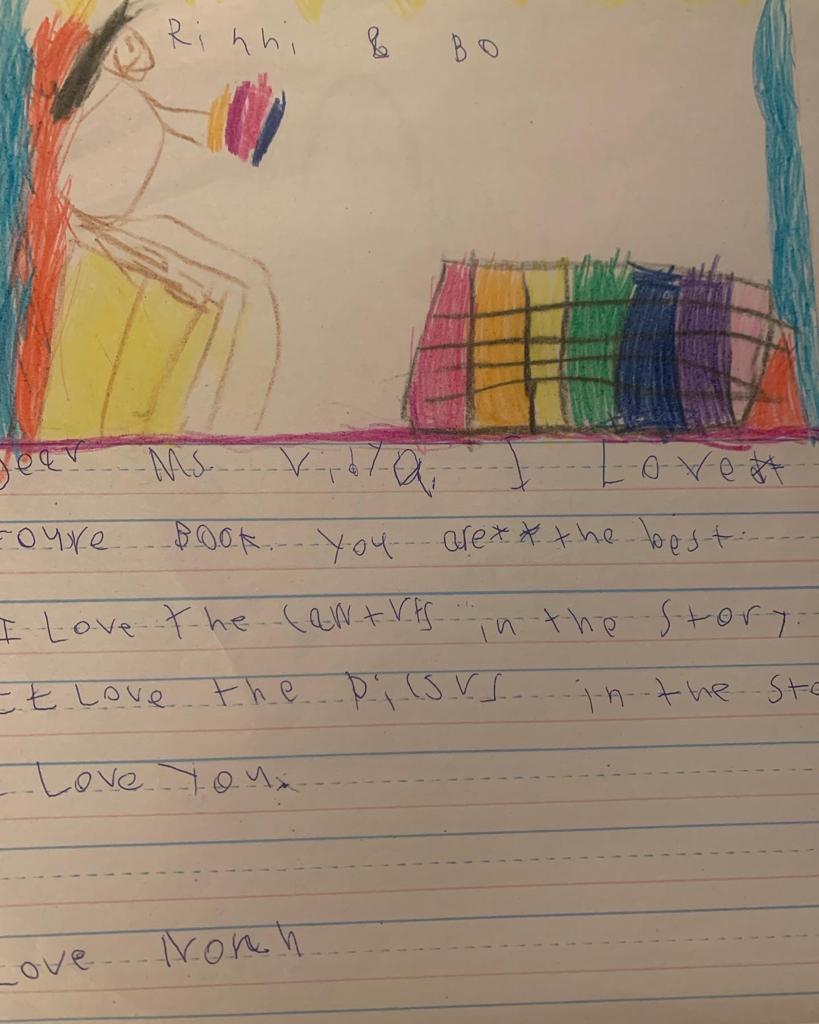 Rihhi & BO
Dear Ms Vidya, I Love
Youre Book. you are the best.
I Love the in the story.
I Love the picsvs in the sto
I Love you.
Love Norah